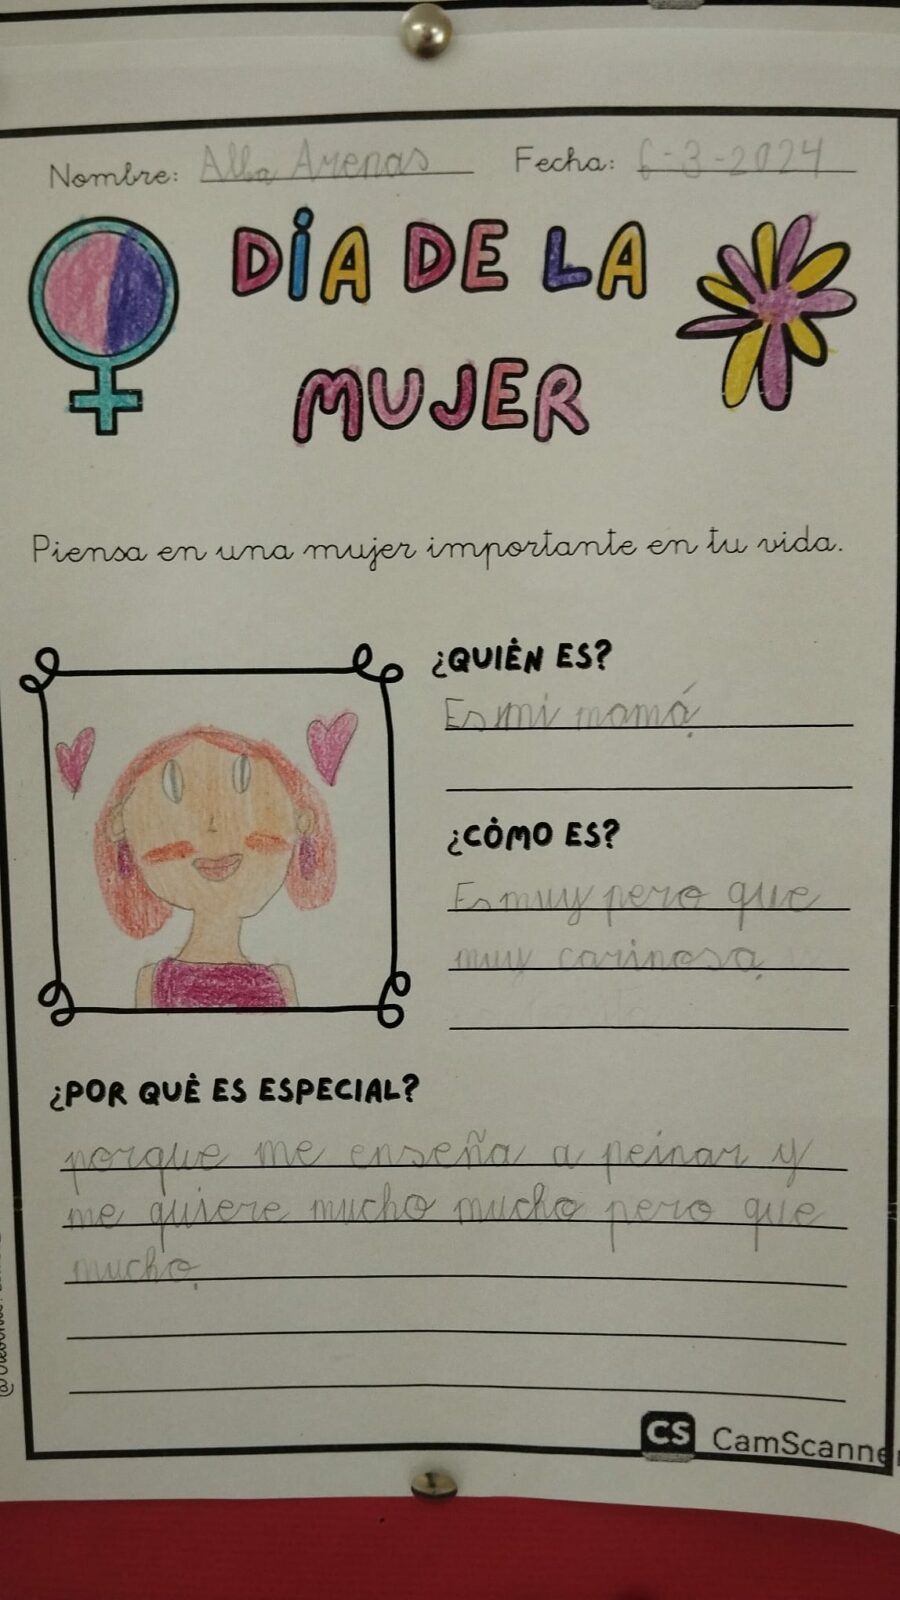 Nombre: Alba Arenas Fecha: 6-3-2024
DÍA DE LA
MUJER
Piensa en una mujer importante en tu vida.
¿QUIÉN ES?
Es mi mamá.
¿CÓMO ES?
Es muy pero que
muy carinosa.
¿POR QUÉ ES ESPECIAL?
porque me enseña a peinar y
me quiere mucho mucho pero que
mucho.
CS CamScanner